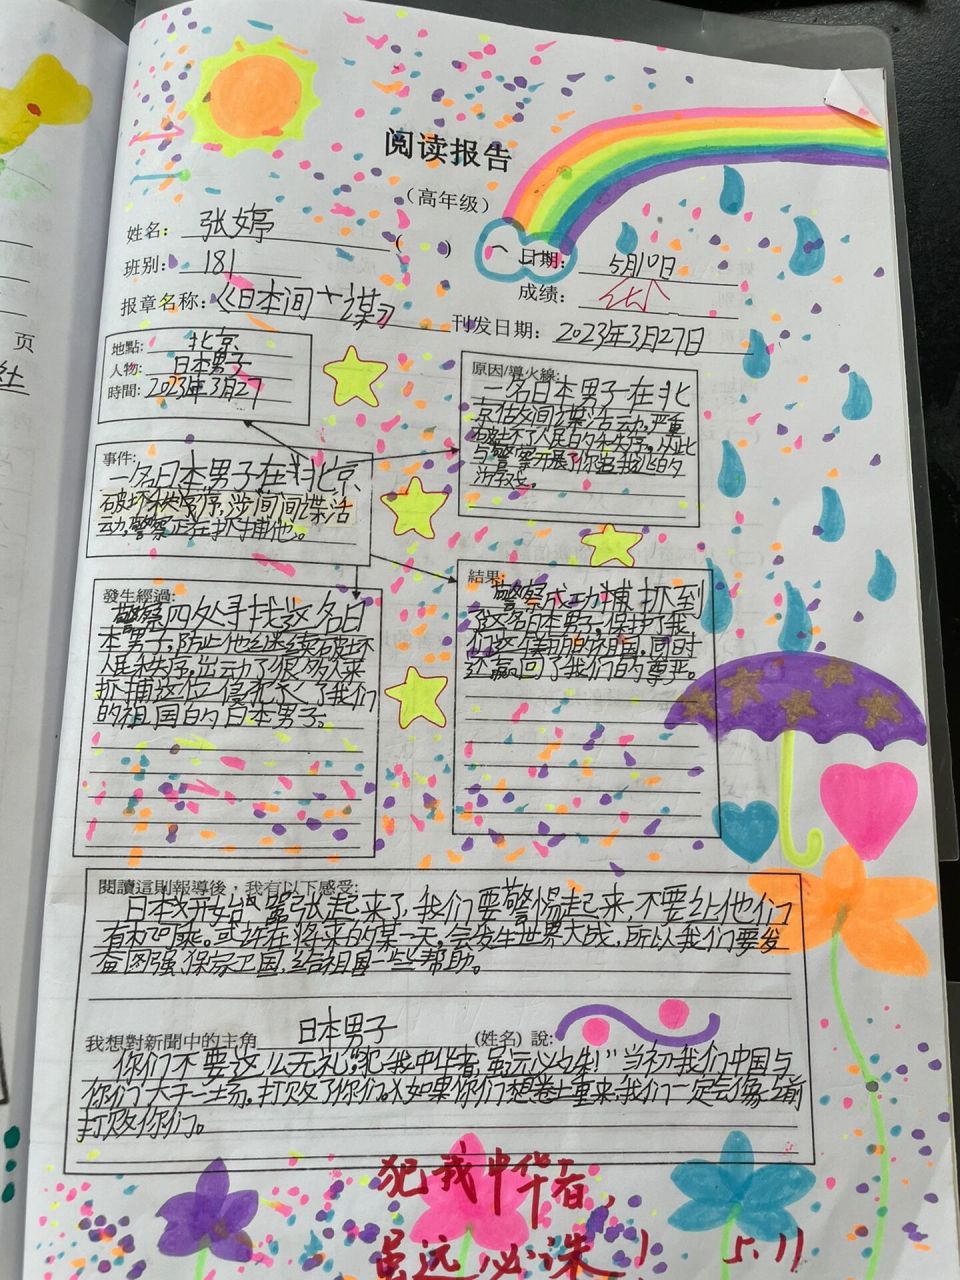 阅读报告
（高年级）
姓名：张婷 （ ）
日期：5月10日
班别：181
成绩：
报章名称：《日本间谍》
刊发日期：2023年3月27日
地點：北京
人物：日本男子
時間：2023年3月27
原因/導火線：
一名日本男子在北
京做间谍活动，严重
破坏了人民的秩序，从此
与警察开展了你追我赶的
事件：
一名日本男子在北京
破坏秩序，涉间间谍活
动，警察正在抓捕他。
發生經過：
警察四处寻找这名日
本男子，防止他继续破坏
人民秩序，出动了很多人来
抓捕这位侵犯了我们
的祖国的日本男子。
結果：
警察成功捕抓到
了这名日本男子，保护了我
们这个美丽的祖国，同时
还赢回了我们的尊严。
閱讀這則報導後，我有以下感受：
日本又开始嚣张起来了，我们要警惕起来，不要让他们
有机可乘。或许在将来的某一天，会发生世界大战，所以我们要发
奋图强，保家卫国，给祖国一些帮助。
我想對新聞中的主角 日本男子 (姓名) 說：
你们不要这么无礼，“犯我中华者，虽远必诛！”当初我们中国与
你们大干一场，打败了你们。如果你们想卷土重来，我们一定会像之前
打败你们。
犯我中华者，
虽远必诛！ 5.11
页